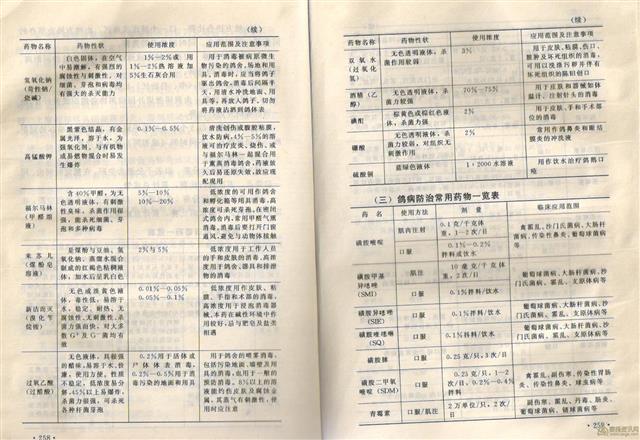 (续)
药物名称 药物性状 使用浓度 应用范围及注意事项
氢氧化钠
(苛性钠/
烧碱)
白色固体，在空气
中易潮解，有强烈的
腐蚀性与刺激性，对
细菌、芽孢和病毒均
有强大的杀灭能力
1%—2%或用
1%—2%热溶液加
5%生石灰合用
用于消毒被病原微生
物污染的鸽舍、场地和用
具，消毒时，应当将鸽子
驱出鸽舍，消毒后间隔半
天，用清水冲洗地面、用
具等，再放入鸽子，切勿
将药液沾洒到鸽体表
高锰酸钾
黑紫色结晶，有金
属光泽，溶于水，为
强氧化剂，与有机物
或易燃物混合时易发
生爆炸
0.1%—0.5%
福尔马林
(甲醛溶
液)
含40%甲醛，为无
色透明液体，有刺激
性臭味，杀菌作用很
强，能杀死细菌、芽
孢和多种病毒
5%—10%
10%—20%
低浓度的可用作鸽舍
和孵化箱等用具消毒，高
浓度可杀死芽孢，在密闭
式鸽舍内，常用甲醛气熏
消毒，消毒后要打开门窗
通风，避免与动物体接触
来苏儿
(煤酚皂
溶液)
是煤酚与豆油、氢
氧化钠、蒸馏水混合
制成的红褐色粘稠液
体，加水后呈乳白色
2%与5%
低浓度用于工作人员
的手和皮肤的消毒，高浓
度用于鸽舍、器具和排泄
物的消毒
新洁而灭
(溴化苄
烷铵)
无色或淡黄色液
体，毒性低，易溶于
水，稳定、耐热、无
腐蚀性、无刺激性，杀
菌力强而快，对大多
数G⁺及G⁻菌均有
效
0.01%—0.05%
0.05%—0.1%
低浓度用作皮肤、粘
膜、手指和木部的消毒，
高浓度用于浸泡消毒器
械，本药在碱性环境中作
用较好，忌与肥皂及盐类
相遇
过氧乙酸
(过醋酸)
无色液体，具很强
的醋味，易溶于水，价
廉，使用方便，性质
不稳定，低浓度易分
解，45%以上易爆炸，
杀菌力很强，可杀死
各种杆菌芽孢
0.2%用于活体或
尸体体表消毒，
0.2%—0.5%用于消
毒污染的地面和用具
用于鸽舍的喷雾消毒，
包括污染地面、墙壁及用
具的消毒，也用于一般的
预防消毒。8%以上的溶
液能灼伤皮肤及腐蚀金
属，其蒸气有刺激性，使
用时应注意
·258·
(续)
药物名称 药物性状 使用浓度 应用范围及注意事项
双氧水
(过氧化
氢)
无色透明液体，杀
菌作用较弱
3%
用于皮肤、粘膜、伤口、
脓肿及坏死组织的消毒，
可用以洗涤污秽并伴有
坏死组织的陈旧创口
酒精(乙
醇)
无色透明液体，杀
菌力较强
70%—75%
用于皮肤和器械如体
温计、注射针头的消毒
碘酊
棕黄色或棕红色液
体，杀菌力强
2%
用于皮肤、手和手术部
位的消毒
硼酸
无色透明液体，杀
菌力较弱，对组织无
刺激作用
2%
常用作鸽鼻炎和眼结
膜炎的冲洗液
硫酸铜 蓝绿色液体 1：2000水溶液 用作饮水治疗鸽鹅口
疮
(三) 鸽病防治常用药物一览表
药名 使用方法 剂量 临床应用范围
磺胺嘧啶
肌肉注射 0.1克/千克体
重，1—2次/日
口服 0.1%—0.2%
拌料或饮水
禽霍乱、沙门氏菌病、大肠杆
菌病、传染性鼻炎、葡萄球菌病
等
磺胺甲基
异噁唑
(SMI)
肌注 10毫克/千克体
重，2次/日
口服 0.1%拌料/饮水
葡萄球菌病、大肠杆菌病、沙
门氏菌病、霍乱、支原体病等
磺胺异噁唑
(SIE)
口服 0.1%拌料/饮水
葡萄球菌病、大肠杆菌病、沙
门氏菌病、霍乱、支原体病等
磺胺喹噁啉
(SQ)
口服 0.1%拌料/饮水
葡萄球菌病、大肠杆菌病、沙
门氏菌病、霍乱等
磺胺脒 口服 0.25克/只，3次/日
磺胺二甲氧
嘧啶(SDM)
口服 0.25克/只，1—2
次/日，0.2%—0.4%
拌料
禽霍乱、副伤寒、传染性胃肠
炎、传染性鼻炎、球虫病等
青霉素 口服/肌注 2万单位/只，2次/
日
副伤寒、霍乱、丹毒、肠炎、
葡萄球菌病、链球菌病等
·259·